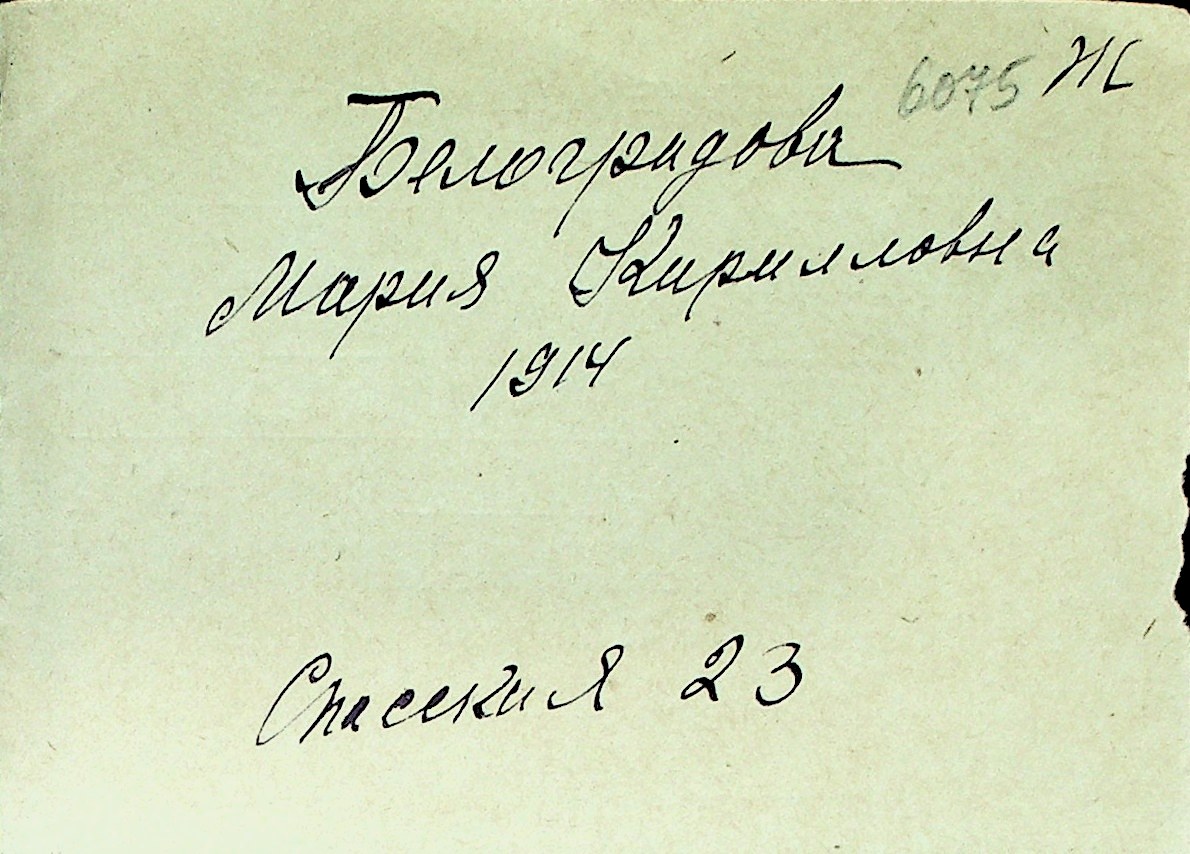 6075 Ж
Белоградова
Мария Кирилловна
1914
Спасская 23